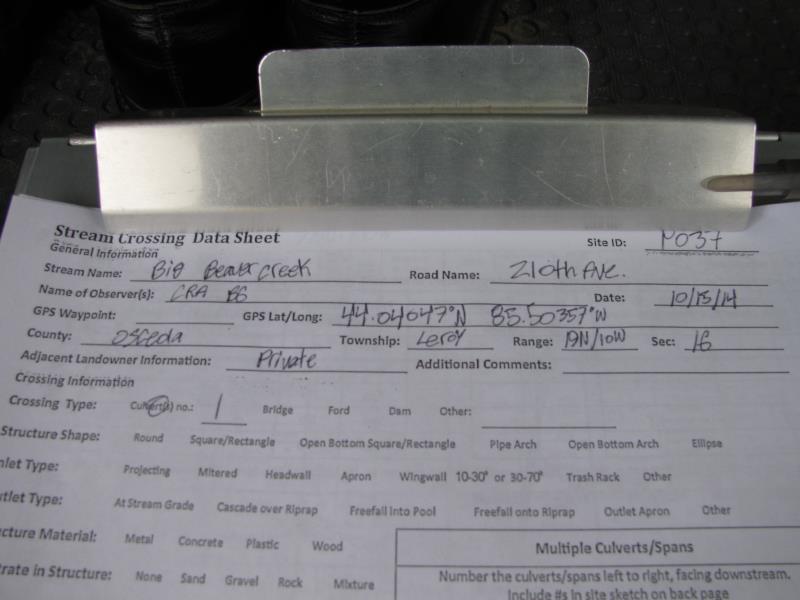 Stream Crossing Data Sheet
General Information Site ID: P037
Stream Name: Big Beaver Creek Road Name: 210th Ave.
Name of Observer(s): CRA BG Date: 10/15/14
GPS Waypoint: GPS Lat/Long: 44.04047°N 85.50357°W
County: Osceola Township: Leroy Range: 19N/10W Sec: 16
Adjacent Landowner Information: Private Additional Comments:
Crossing Information
Crossing Type: Culvert(s) no.: 1 Bridge Ford Dam Other:
Structure Shape: Round Square/Rectangle Open Bottom Square/Rectangle Pipe Arch Open Bottom Arch Ellipse
nlet Type: Projecting Mitered Headwall Apron Wingwall 10-30° or 30-70° Trash Rack Other
utlet Type: At Stream Grade Cascade over Riprap Freefall Into Pool Freefall onto Riprap Outlet Apron Other
ucture Material: Metal Concrete Plastic Wood
Multiple Culverts/Spans
trate in Structure: None Sand Gravel Rock Mixture
Number the culverts/spans left to right, facing downstream.
Include #s in site sketch on back page